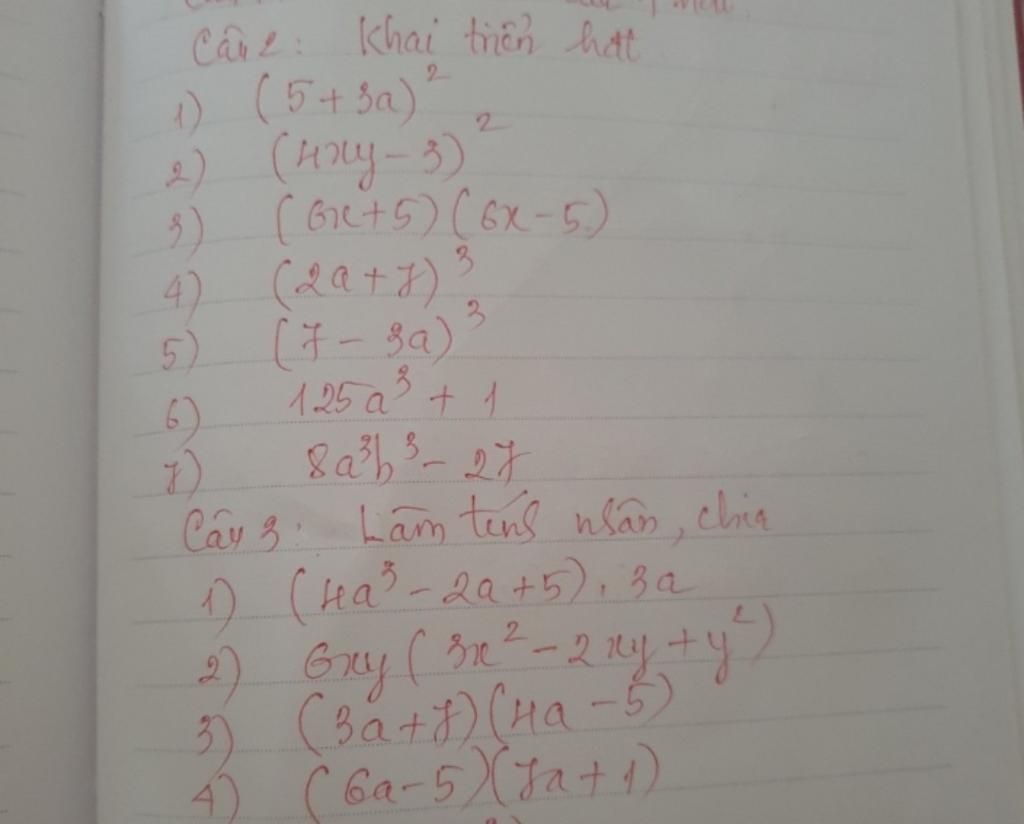 Câu 2: Khai triển hđt
1) (5+3a)²
2) (4xy-3)²
3) (6x+5)(6x-5)
4) (2a+7)³
5) (7-3a)³
6) 125a³ + 1
7) 8a³b³ - 27
Câu 3: Làm tính nhân, chia
1) (4a³-2a+5).3a
2) 6xy(3x²-2xy+y²)
3) (3a+7)(4a-5)
4) (6a-5)(7a+1)